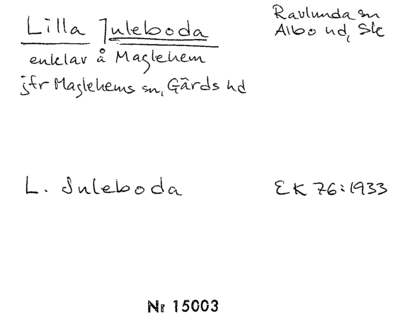 Lilla Juleboda
Ravlunda sn
Albo hd, Sk
enklav å Maglehem
jfr Maglehems sn, Gärds hd
L. Juleboda
EK 76:1933
Nr 15003